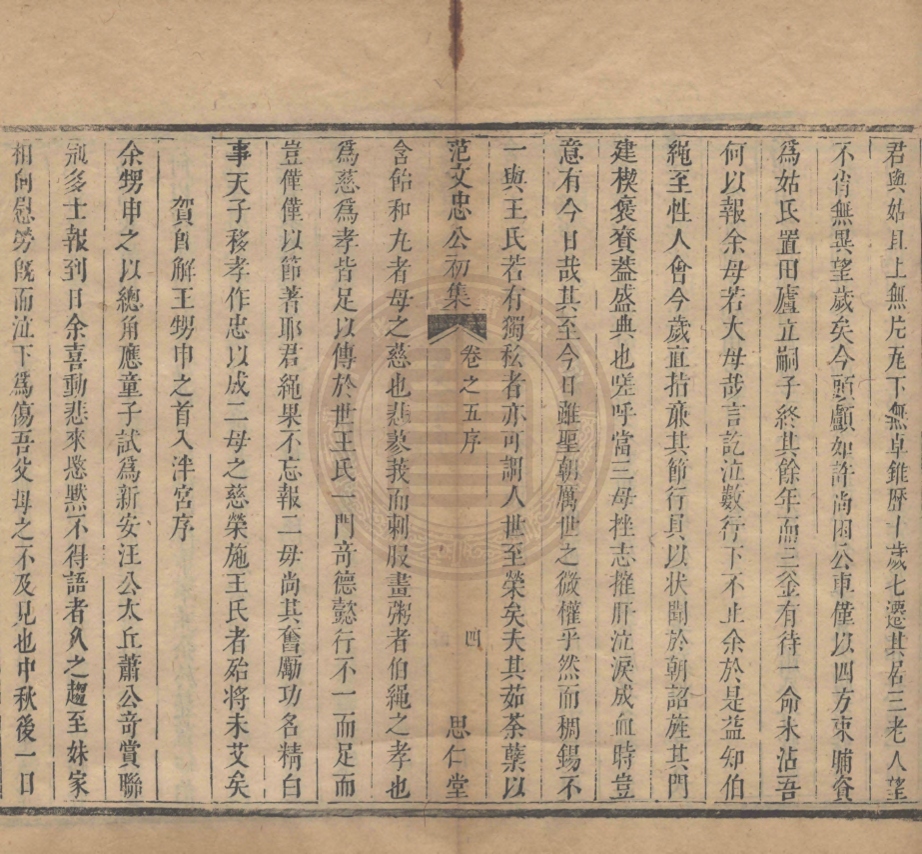 君與姑且上無片瓦下無卓錐歷十歲七遷其居三老人望
不肖無異望歲矣今頭顱如許尚困公車僅以四方束脯資
為姑氏置田廬立嗣子終其餘年而三釜有待一命未沾吾
何以報余母若大母哉言訖泣數行下不止余於是益知伯
繩至性人會今歲直指兼其節行具以状聞於朝詔旌其門
建楔褒賚葢盛典也嗟乎當三母挫志摧肝泣淚成血時豈
意有今日哉其至今日雖聖朝厲世之微權乎然而稠錫不
一與王氏若有獨私者亦可謂人世至榮矣夫其茹荼蘗以
范文忠公初集 卷之五序 四 思仁堂
含飴和丸者母之慈也悲蓼莪而刺股畫粥者伯繩之孝也
為慈為孝皆足以傳於世王氏一門竒德懿行不一而足而
豈僅僅以節著耶君繩果不忘報二母尚其奮勵功名精白
事天子移孝作忠以成二母之慈榮施王氏者殆將未艾矣
賀自解王甥申之首入泮宮序
余甥申之以總角應童子試為新安汪公太丘蕭公竒賞聯
冠多士報到日余喜動悲來愍黙不得語者乆之趨至妹家
相向慰勞旣而泣下爲傷吾父母之不及見也中秋後一日